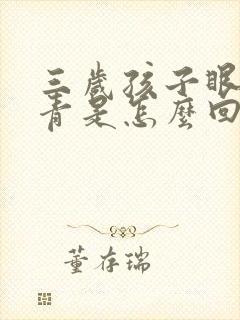 三歲孩子眼
青是怎麼回
董存瑞